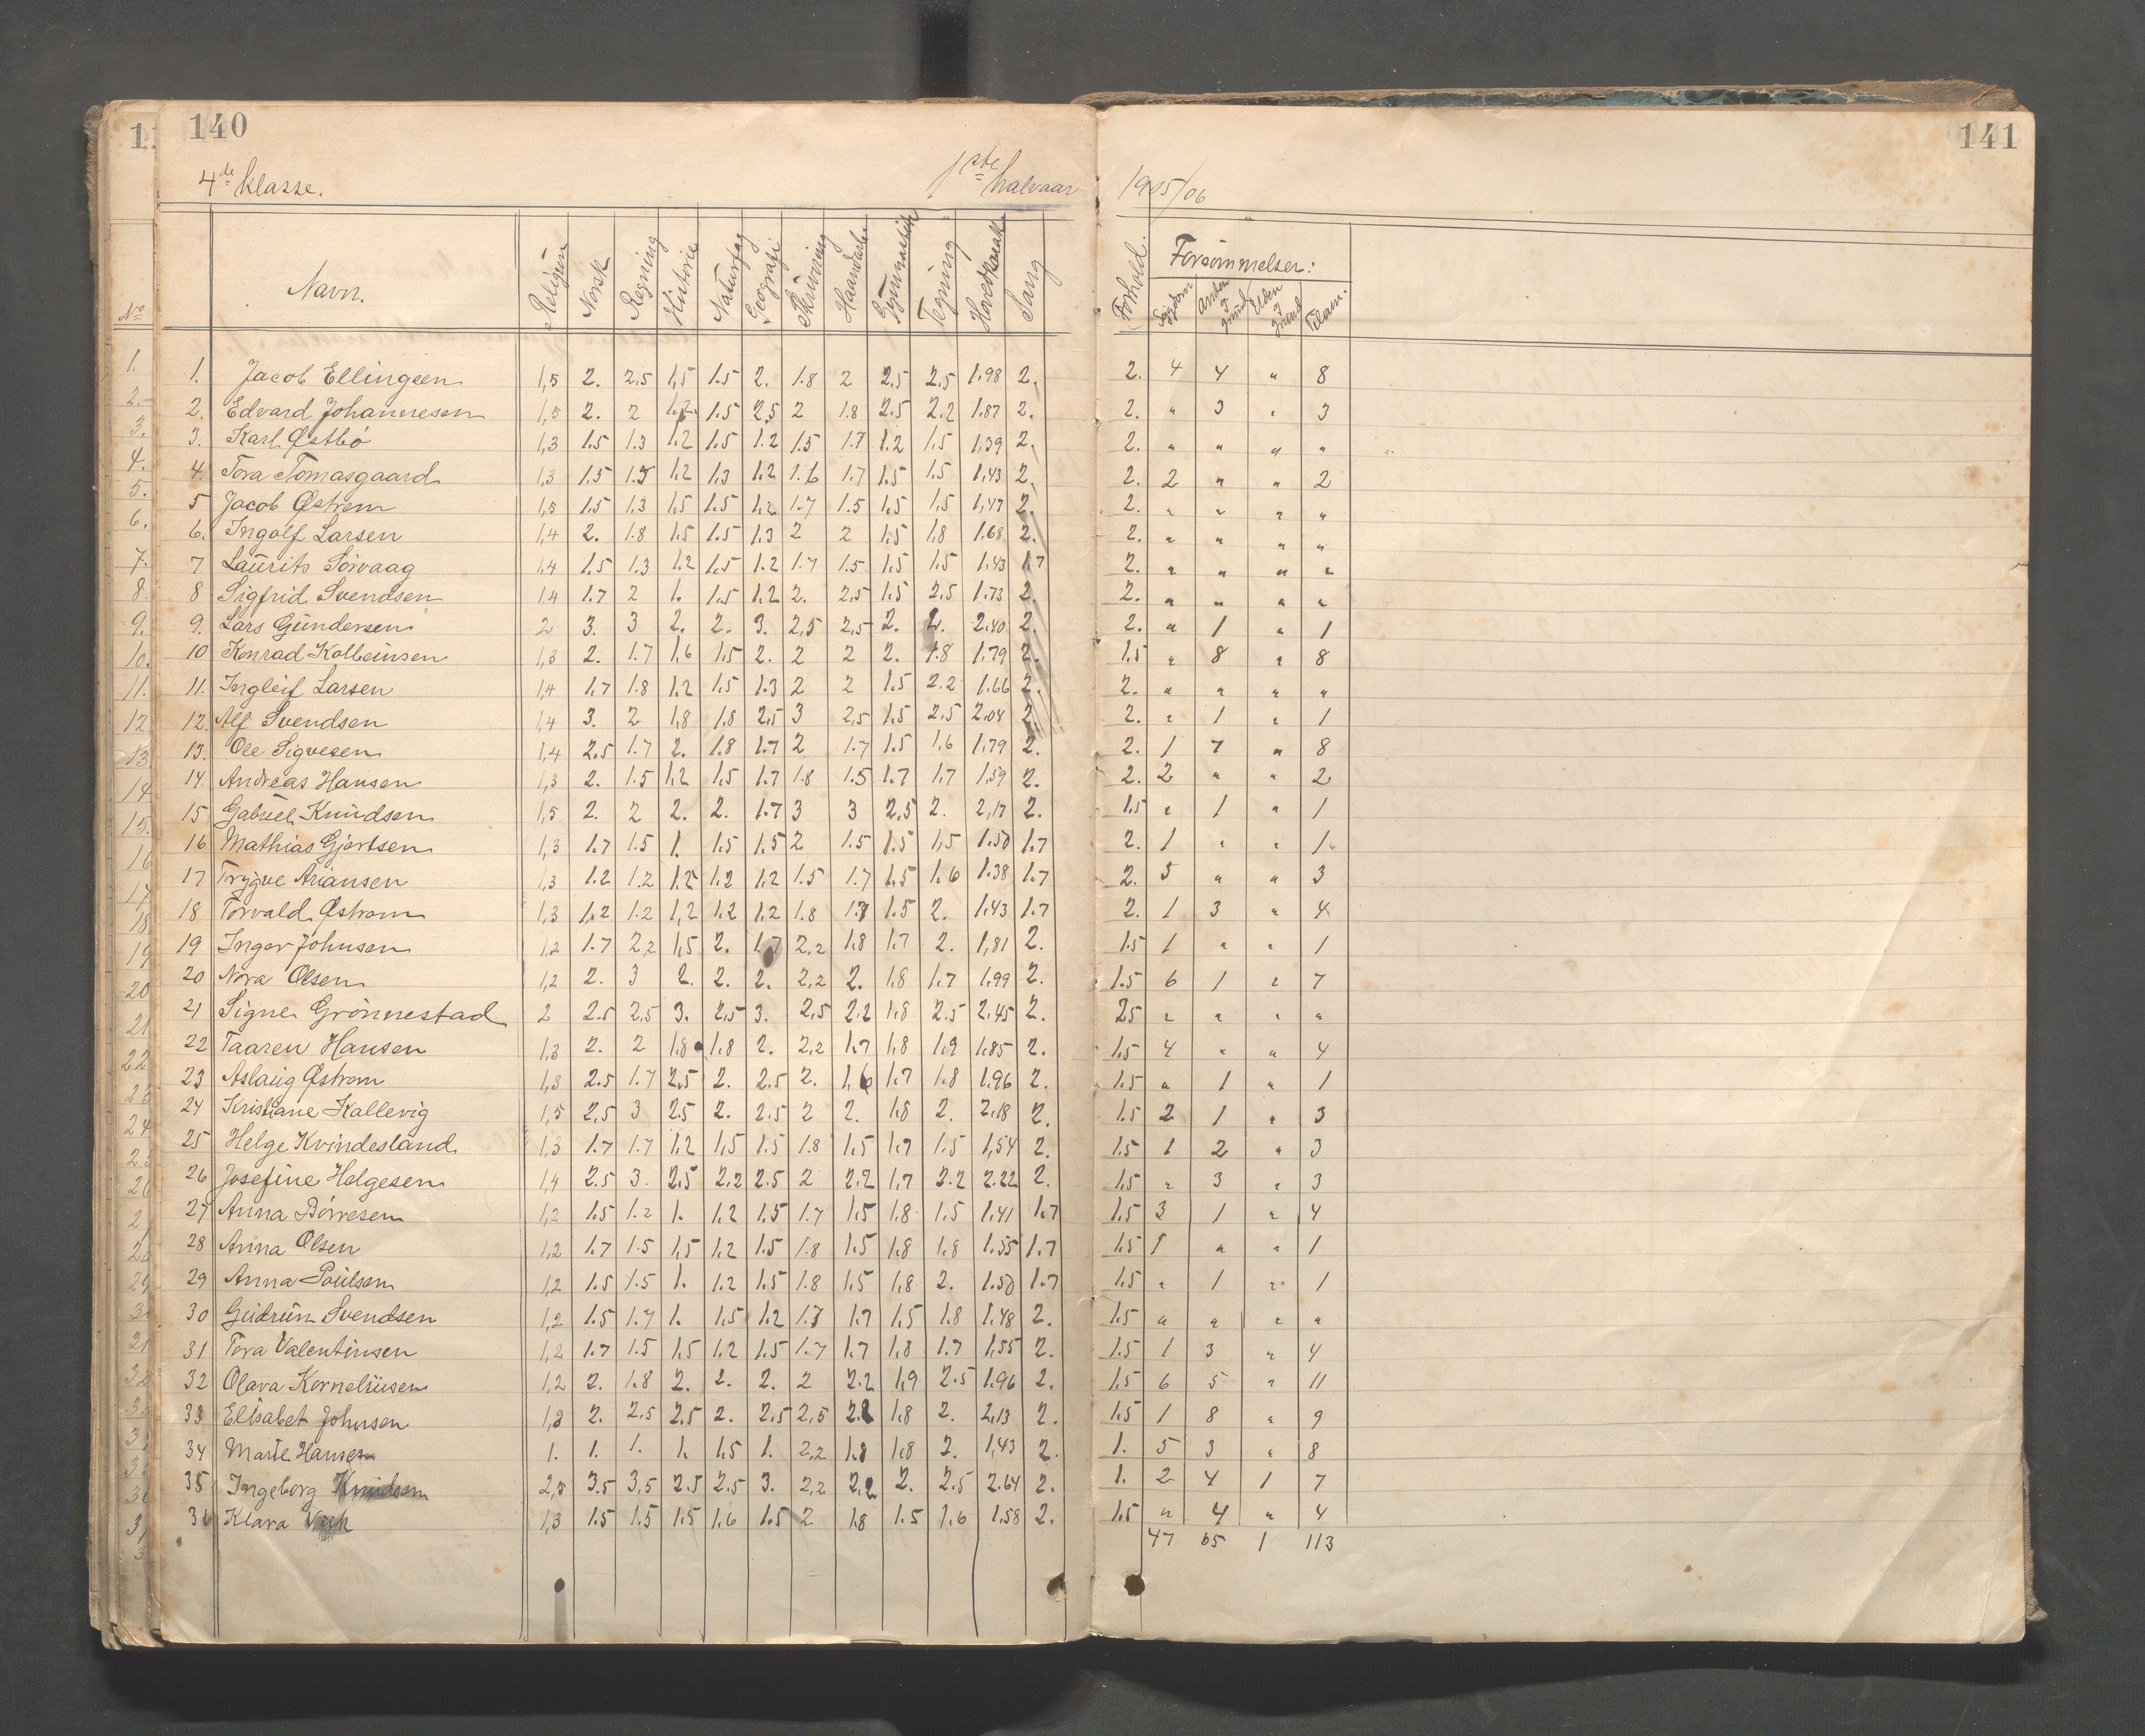 140
141
4de klasse.
1ste halvaar
1905/06
No
Navn.
Religion Norsk Regning Historie Naturfag Geografi Skrivning Haandarb. Gymnastik Tegning Hovedkarak. Sang
Forhold. Forsømmelser:
Sygdom Anden Grund Uden Grund Tilsam.
1. Jacob Ellingsen 1,5 2. 2,5 1,5 1.5 2. 1.8 2 2,5 2,5 1.98 2. 2. 4 4 " 8
2. Edvard Johannesen 1,5 2. 2 1,2 1.5 2,5 2 1.8 2.5 2.2 1.87 2. 2. " 3 " 3
3. Karl Østbø 1,3 1.5 1.3 1.2 1.5 1.2 1.5 1.7 1.2 1,5 1,39 2. 2. " " " "
4. Tora Tomasgaard 1,3 1.5 1.5 1,2 1,3 1.2 1.6 1.7 1.5 1.5 1,43 2. 2. 2 " " 2
5 Jacob Østrem 1,5 1.5 1.3 1,5 1.5 1,2 1.7 1.5 1,5 1,5 1,47 2. 2. " " " "
6. Ingolf Larsen 1,4 2. 1.8 1.5 1.5 1.3 2 2 1,5 1,8 1,68 2. 2. " " " "
7 Laurits Sørvaag 1,4 1.5 1.3 1.2 1,5 1.2 1.7 1.5 1.5 1.5 1.43 1.7 2. " " " "
8 Sigfrid Svendsen 1.4 1.7 2 1. 1.5 1.2 2. 2,5 1.5 2.5 1.73 2. 2. " " " "
9. Lars Gundersen 2 3. 3 2. 2. 3. 2,5 2,5 2. 2. 2.40 2. 2. " 1 " 1
10 Konrad Kolbeinsen 1,3 2. 1.7 1,6 1.5 2. 2 2 2. 1.8 1.79 2. 1.5 " 8 " 8
11. Ingleif Larsen 1,4 1.7 1.8 1.2 1.5 1.3 2 2 1.5 2.2 1.66 2. 2. " " " "
12. Alf Svendsen 1,4 3. 2 1,8 1.8 2,5 3 2,5 1.5 2.5 2.04 2. 2. " 1 " 1
13. Ole Sigvesen 1,4 2.5 1.7 2. 1.8 1.7 2 1.7 1.5 1.6 1.79 2. 2. 1 7 " 8
14. Andreas Hansen 1,3 2. 1.5 1,2 1,5 1.7 1.8 1.5 1.7 1.7 1,59 2. 2. 2 " " 2
15 Gabriel Knudsen 1,5 2. 2 2. 2. 1.7 3 3 2,5 2. 2,17 2. 1.5 " 1 " 1
16 Mathias Gjertsen 1,3 1.7 1.5 1. 1.5 1.5 2 1.5 1.5 1,5 1.50 1.7 2. 1 " " 1
17 Trygve Ariansen 1,3 1.2 1.2 1.2 1.2 1.2 1.5 1.7 1.5 1.6 1.38 1.7 2. 5 " " 3
18 Torvald Østrem 1,3 1.2 1.2 1,2 1,2 1.2 1.8 1.7 1.5 2. 1.43 1.7 2. 1 3 " 4
19 Inger Johnsen 1,2 1.7 2.2 1,5 2. 1.7 2,2 1.8 1.7 2. 1,81 2. 1.5 1 " " 1
20 Nora Olsen 1,2 2. 3 2. 2. 2. 2,2 2. 1.8 1.7 1.99 2. 1.5 6 1 " 7
21 Signe Grønnestad 2 2.5 2,5 3. 2,5 3. 2,5 2.2 1,8 2.5 2.45 2. 25 " " " "
22 Taaren Hansen 1,3 2. 2 1.8 1.8 2. 2,2 1.7 1.8 1.9 1.85 2. 1.5 4 " " 4
23 Aslaug Østrem 1,3 2.5 1.7 2,5 2. 2.5 2. 1,6 1.7 1.8 1.96 2. 1.5 " 1 " 1
24 Kristiane Kallevig 1,5 2,5 3 2.5 2. 2.5 2 2. 1.8 2. 2,18 2. 1.5 2 1 " 3
25 Helge Kvindesland 1,3 1.7 1.7 1,2 1,5 1.5 1.8 1,5 1.7 1.5 1,54 2. 1.5 1 2 " 3
26 Josefine Helgesen 1,4 2.5 3. 2.5 2,2 2.5 2 2.2 1,7 2.2 2.22 2. 1.5 " 3 " 3
27 Anna Børresen 1,2 1.5 1.2 1. 1.2 1.5 1.7 1.5 1.8 1.5 1.41 1.7 1.5 3 1 " 4
28 Anna Olsen 1,2 1.7 1.5 1,5 1.2 1.5 1.8 1.5 1.8 1.8 1.55 1.7 1.5 1 " " 1
29 Anna Poulsen 1,2 1.5 1.5 1. 1.2 1.5 1.8 1.5 1,8 2. 1.50 1.7 1.5 " 1 " 1
30 Gudrun Svendsen 1,2 1.5 1.7 1. 1.5 1.2 1.7 1.7 1.5 1.8 1.48 2. 1.5 " " " "
31 Tora Valentinsen 1,2 1.7 1.5 1.5 1.2 1.5 1.7 1.7 1.8 1.7 1.55 2. 1.5 1 3 " 4
32 Olava Korneliusen 1,2 2. 1.8 2. 2. 2. 2 2.2 1,9 2.5 1.96 2. 1.5 6 5 " 11
33 Elisabet Johnsen 1,3 2. 2,5 2.5 2. 2.5 2,5 2.2 1.8 2. 2,13 2. 1.5 1 8 " 9
34 Marie Hansen 1. 1. 1. 1. 1.5 1. 2,2 1.8 1.8 2. 1,43 2. 1. 5 3 " 8
35 Ingeborg Knudsen 2,5 3.5 3,5 2.5 2.5 3. 2,2 2,2 2. 2.5 2.64 2. 1. 2 4 1 7
36 Klara 1,3 1.5 1.5 1.5 1.6 1.5 2 1.8 1.5 1.6 1.58 2. 1.5 " 4 " 4
47 65 1 113